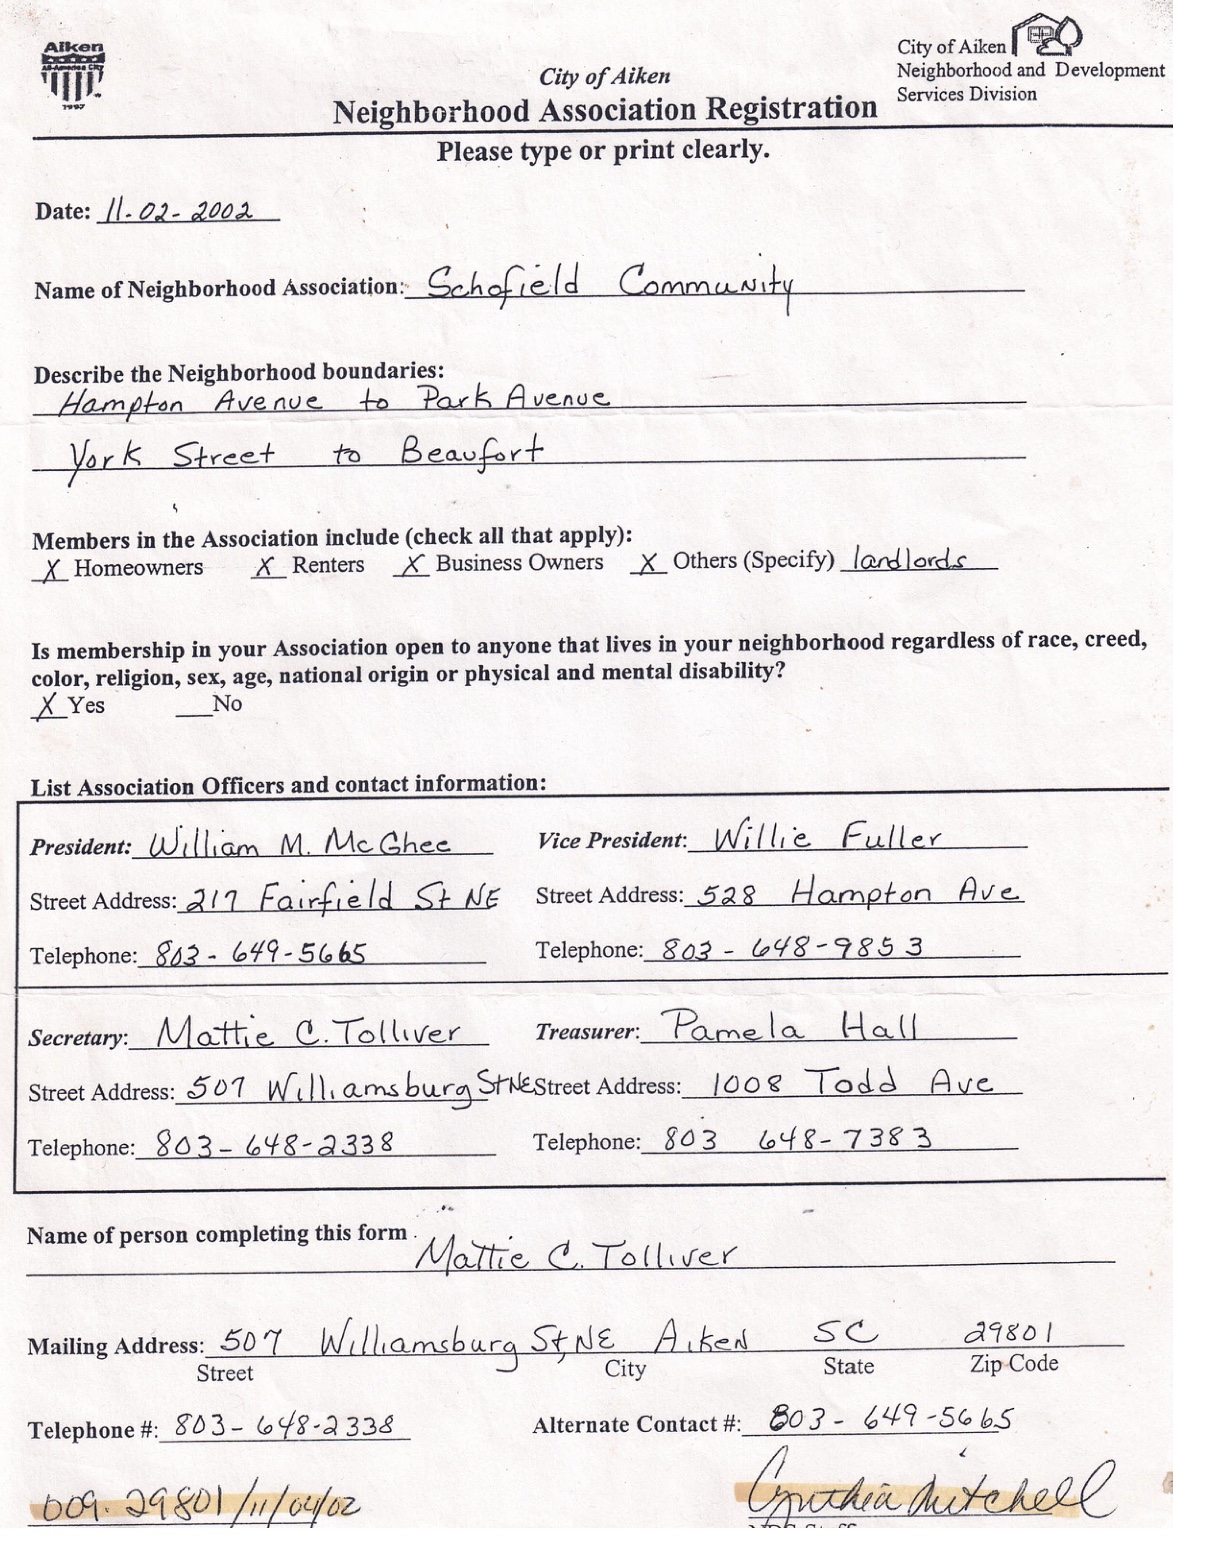 Aiken
All-America City
1997
City of Aiken
Neighborhood and Development
Services Division
City of Aiken
Neighborhood Association Registration
Please type or print clearly.
Date: 11-02-2002
Name of Neighborhood Association: Schofield Community
Describe the Neighborhood boundaries:
Hampton Avenue to Park Avenue
York Street to Beaufort
Members in the Association include (check all that apply):
X Homeowners X Renters X Business Owners X Others (Specify) landlords
Is membership in your Association open to anyone that lives in your neighborhood regardless of race, creed,
color, religion, sex, age, national origin or physical and mental disability?
X Yes ___No
List Association Officers and contact information:
President: William M. McGhee Vice President: Willie Fuller
Street Address: 217 Fairfield St NE Street Address: 528 Hampton Ave
Telephone: 803-649-5665 Telephone: 803-648-9853
Secretary: Mattie C. Tolliver Treasurer: Pamela Hall
Street Address: 507 Williamsburg St NE Street Address: 1008 Todd Ave
Telephone: 803-648-2338 Telephone: 803 648-7383
Name of person completing this form
Mattie C. Tolliver
Mailing Address: 507 Williamsburg St, NE Aiken SC 29801
Street City State Zip Code
Telephone #: 803-648-2338 Alternate Contact #: 803-649-5665
009-29801/11/04/02 Cynthia Mitchell